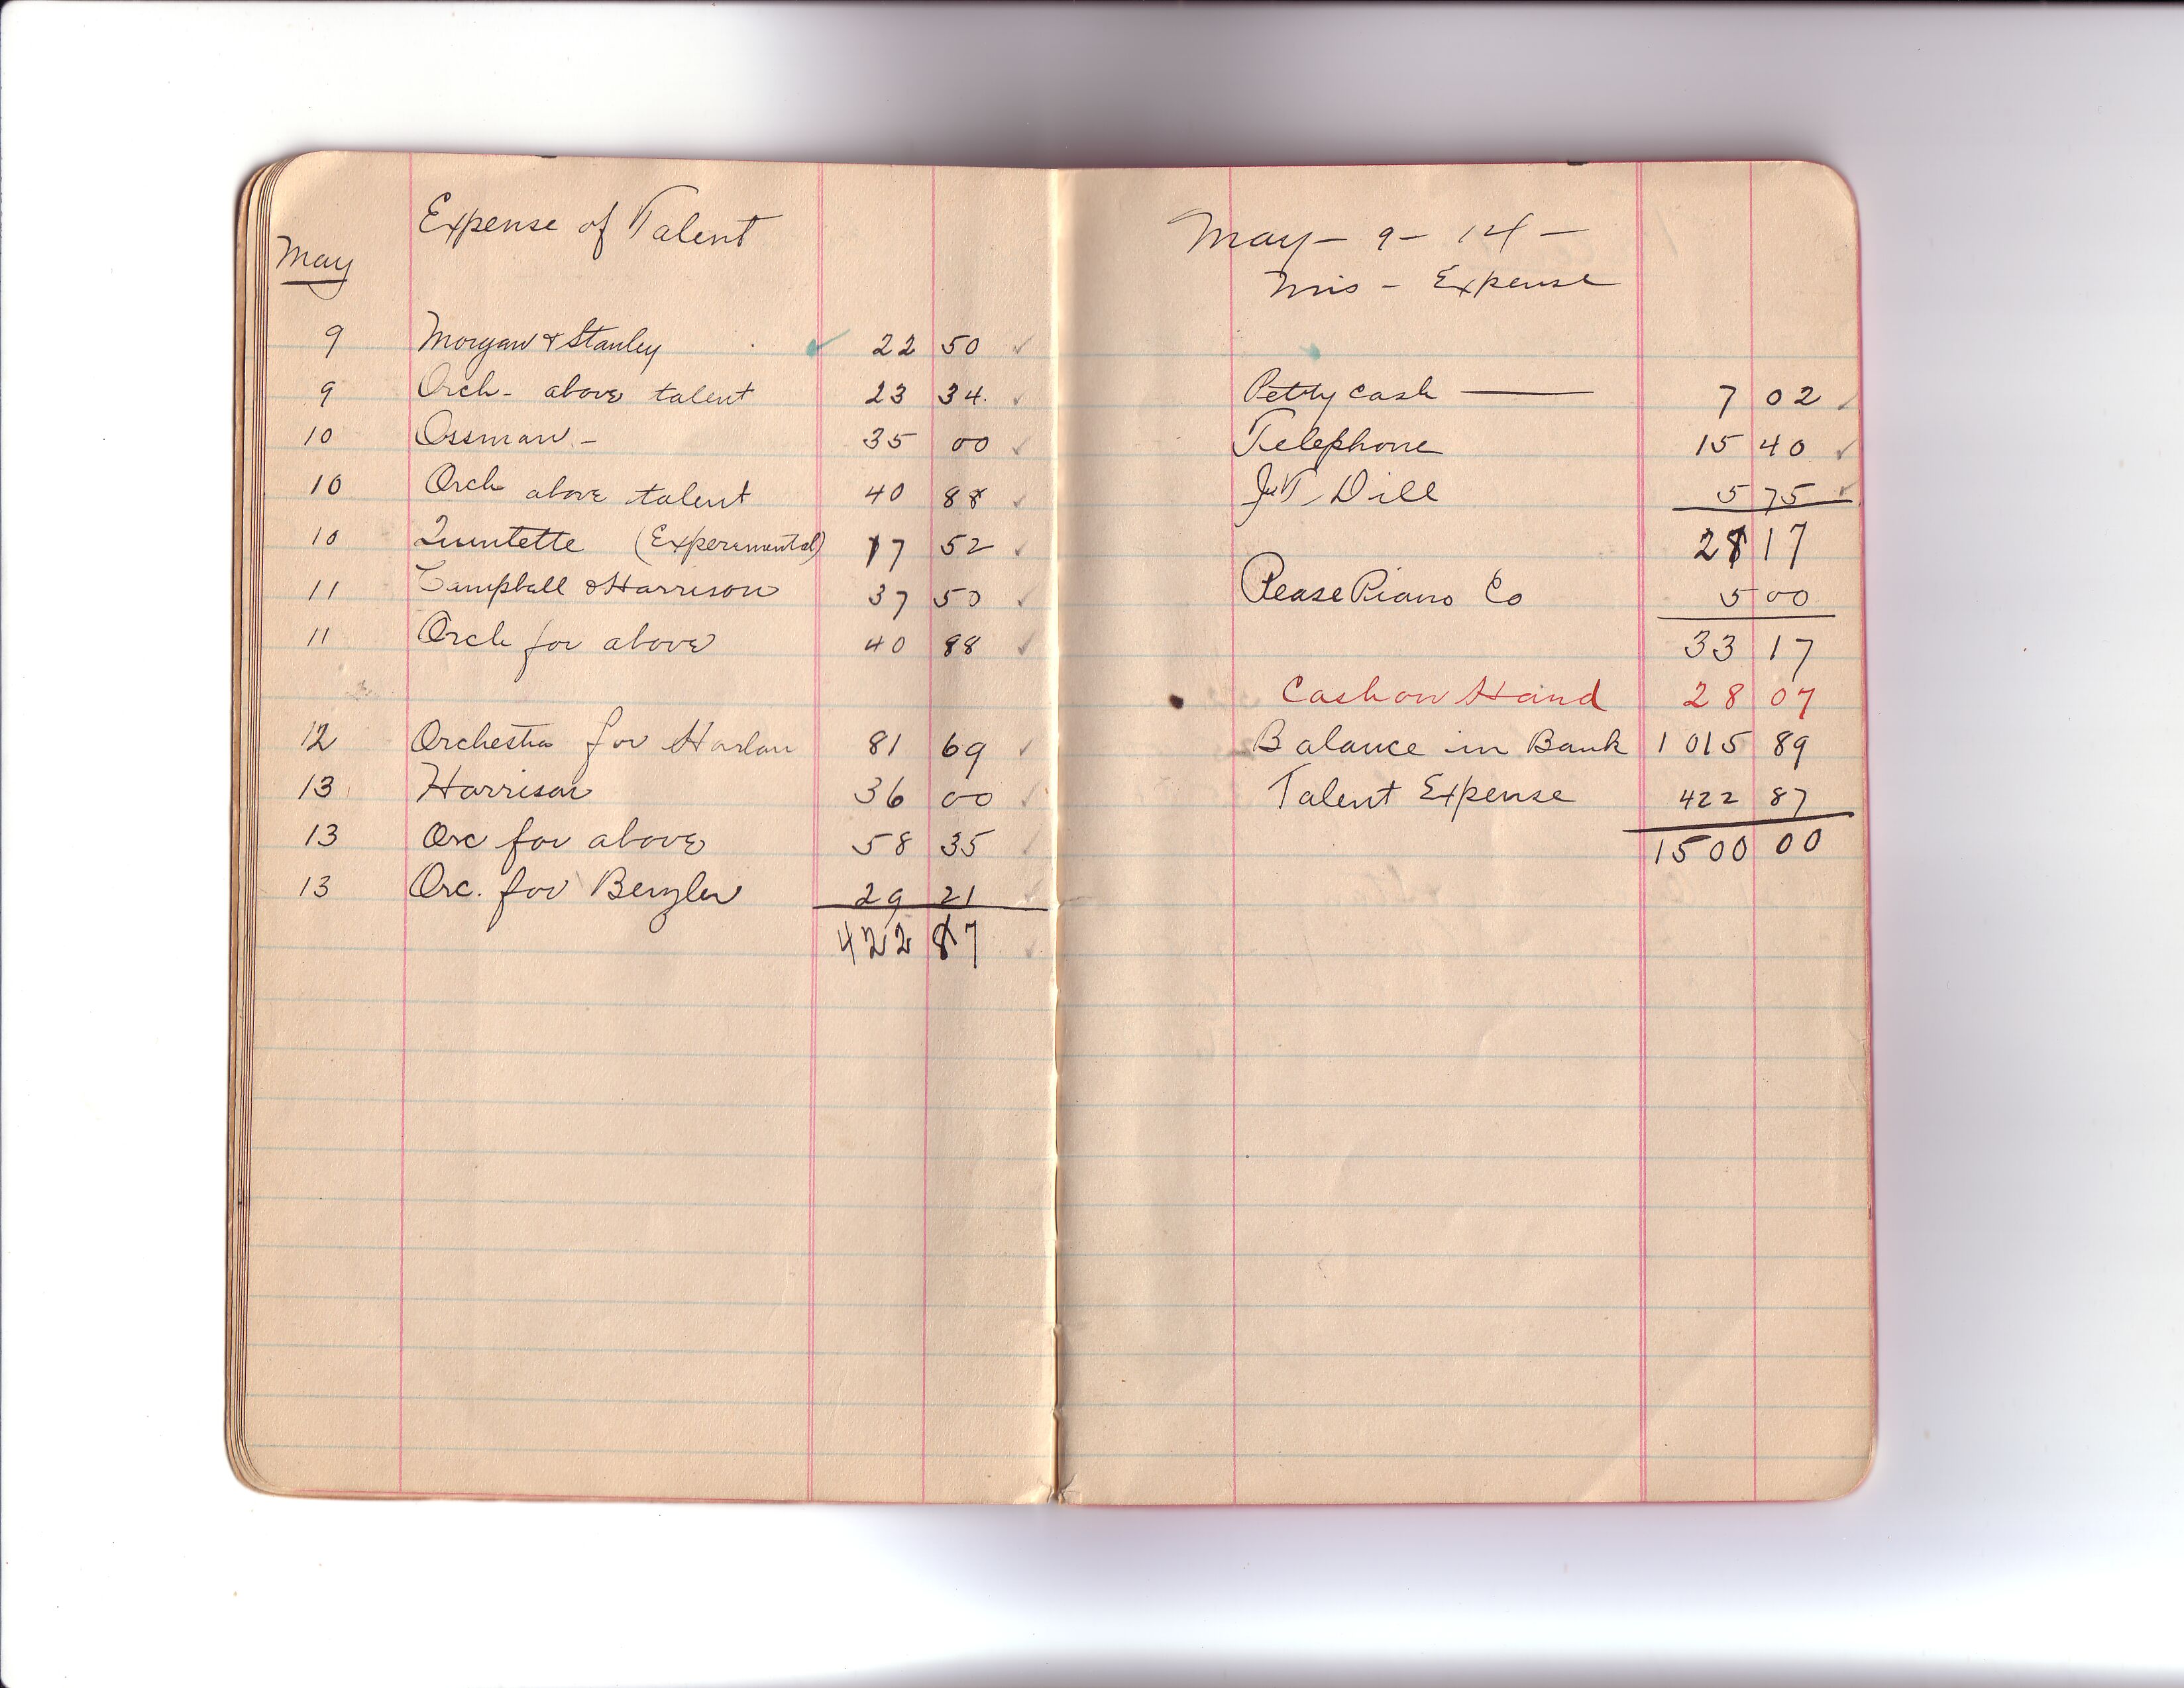 Expense of Talent
May
9 Morgan & Stanley 22 50
9 Orch - above talent 23 34.
10 Ossman - 35 00
10 Orch above talent 40 88
10 Quintette (Experimental) 17 52
11 Campbell & Harrison 37 50
11 Orch for above 40 88
12 Orchestra for Harlan 81 69
13 Harrison 36 00
13 Orc for above 58 35
13 Orc. for 29 21
422 87
May - 9 - 14 -
Mis - Expense
Petty cash — 7 02
Telephone 15 40
Dill 5 75
28 17
Pease Piano Co 5 00
33 17
Cash on Hand 28 07
Balance in Bank 1 015 89
Talent Expense 422 87
1500 00